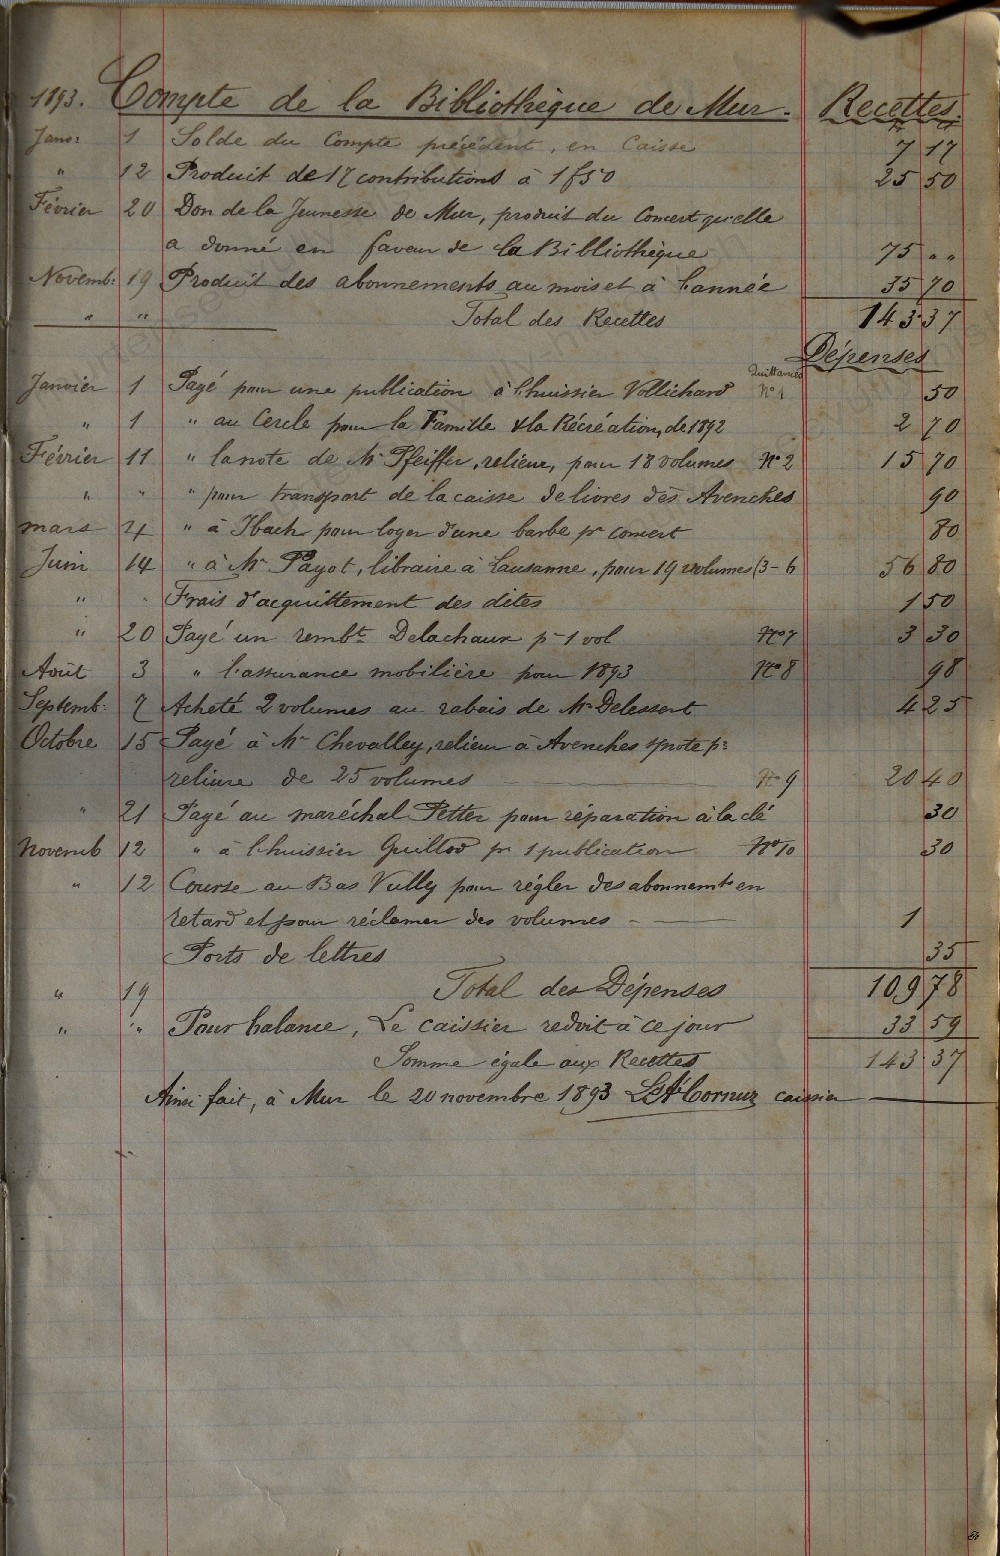 1893. Compte de la Bibliothèque de Mur. Recettes.
fr ct
Janv: 1 Solde du Compte précédent, en Caisse 7 17
" 12 Produit de 17 contributions à 1 f 50 25 50
Février 20 Don de la Jeunesse de Mur, produit du Concert qu'elle
a donné en faveur de la Bibliothèque 75 " "
Novemb: 19 Produit des abonnements au mois et à l'année 35 70
" " Total des Recettes 143 37
Dépenses
Quittances
Janvier 1 Payé pour une publication à l'huissier Vollichard No 1 50
" 1 " au Cercle pour la Famille & la Récréation, de 1892 2 70
Février 11 " la note de Mr Pfeiffer, relieur, pour 18 volumes No 2 15 70
" " " pour transport de la caisse de livres dès Avenches 90
mars 4 " à Ibach pour loyer d'une barbe pr concert 80
Juin 14 " à Mr Payot, libraire à Lausanne, pour 19 volumes (3-6 56 80
" " Frais d'acquittement des dites 1 50
" 20 Payé un rembt Delachaux pr 1 vol No 7 3 30
Août 3 " l'assurance mobilière pour 1893 No 8 98
Septemb: 7 Acheté 2 volumes au rabais de Mr Delessert 4 25
Octobre 15 Payé à Mr Chevalley, relieur à Avenches note pr
reliure de 25 volumes No 9 20 40
" 21 Payé au maréchal Petter pour réparation à la clé 30
Novemb 12 " à l'huissier Guillod pr 1 publication No 10 30
" 12 Course au Bas Vully pour régler des abonnemts en
retard et pour réclamer des volumes 1
Ports de lettres 35
" 19 Total des Dépenses 109 78
" " Pour balance, Le caissier redoit à ce jour 33 59
Somme égale aux Recettes 143 37
Ainsi fait, à Mur le 20 novembre 1893 Ls Al Cornuz caissier